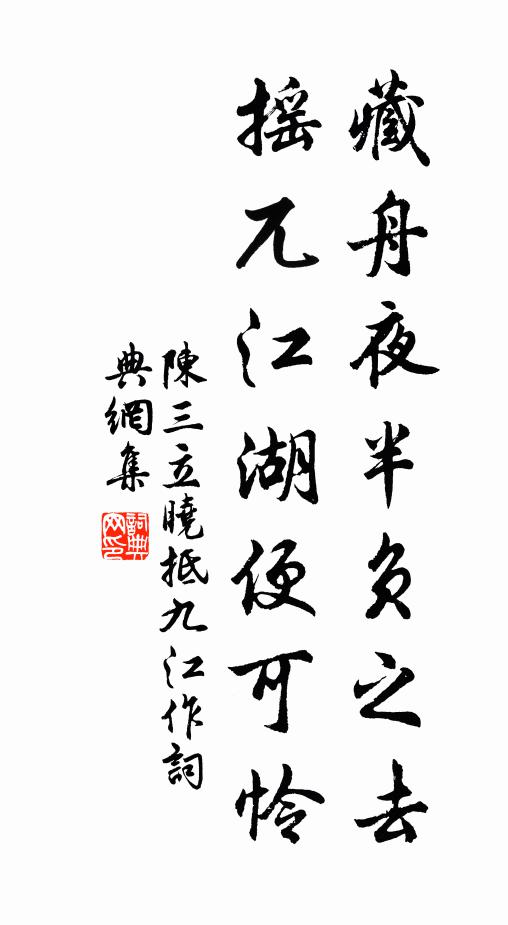 藏舟夜半负之去
摇兀江湖便可怜
陳三立曉抵九江作詞
典網集
詞典
网印